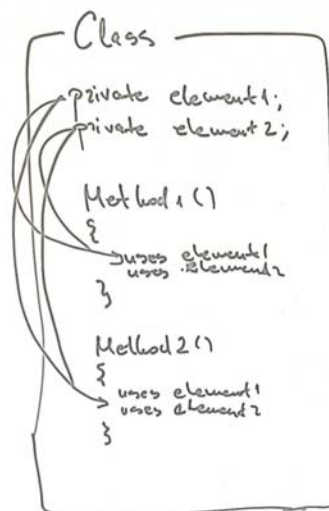 Class
private element1;
private element2;
Method1()
{
uses element1
uses element2
}
Method2()
{
uses element1
uses element2
}